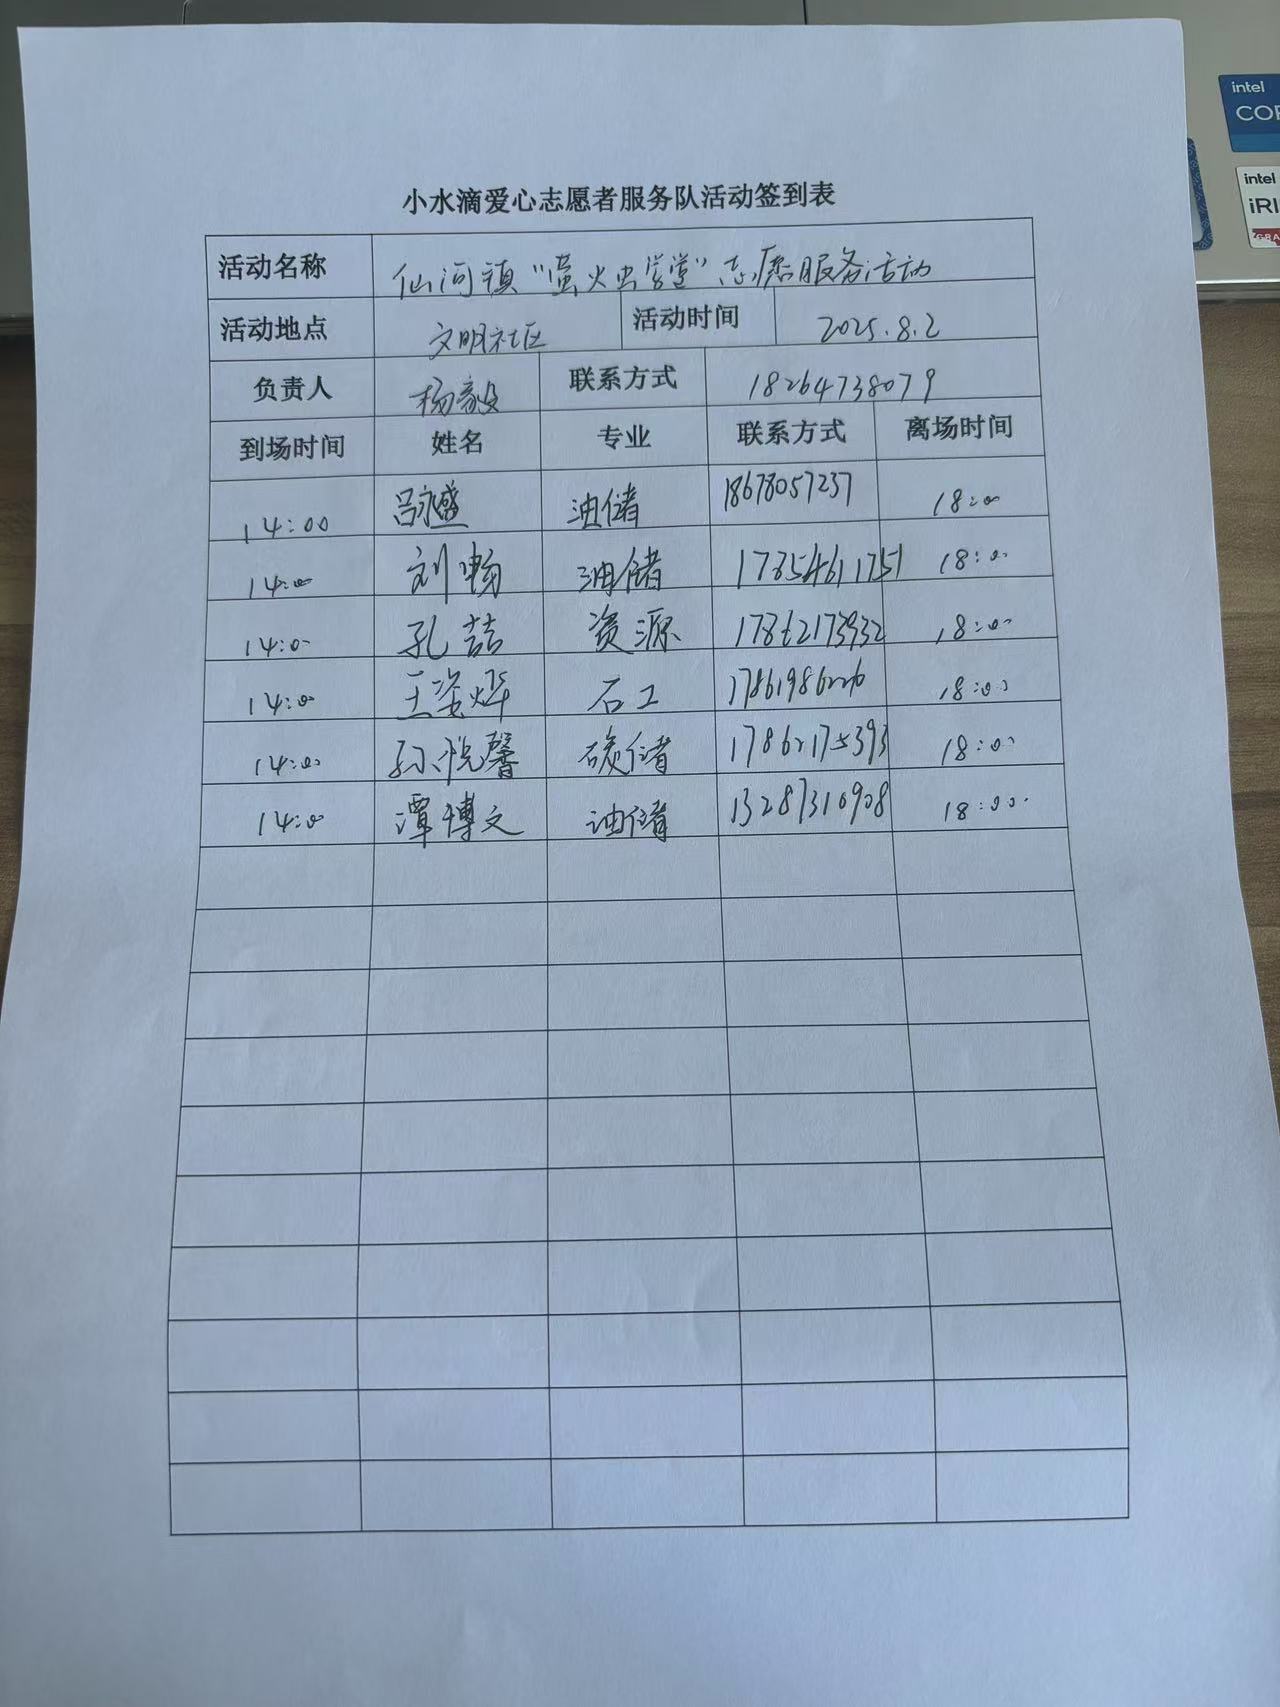 intel
COR
intel
iRI
小水滴爱心志愿者服务队活动签到表
活动名称 仙河镇“萤火虫学堂”志愿服务活动
活动地点 文明社区 活动时间 2025.8.2
负责人 杨毅 联系方式 18264738079
到场时间 姓名 专业 联系方式 离场时间
14:00 吕永盛 油储 18678057237 18:00
14:00 刘畅 油储 17854611751 18:00
14:00 孔喆 资源 17862173932 18:00
14:00 王姿烨 石工 18:00
14:00 孙悦馨 碳储 17862175393 18:00
14:00 潭博文 油储 13287310908 18:00